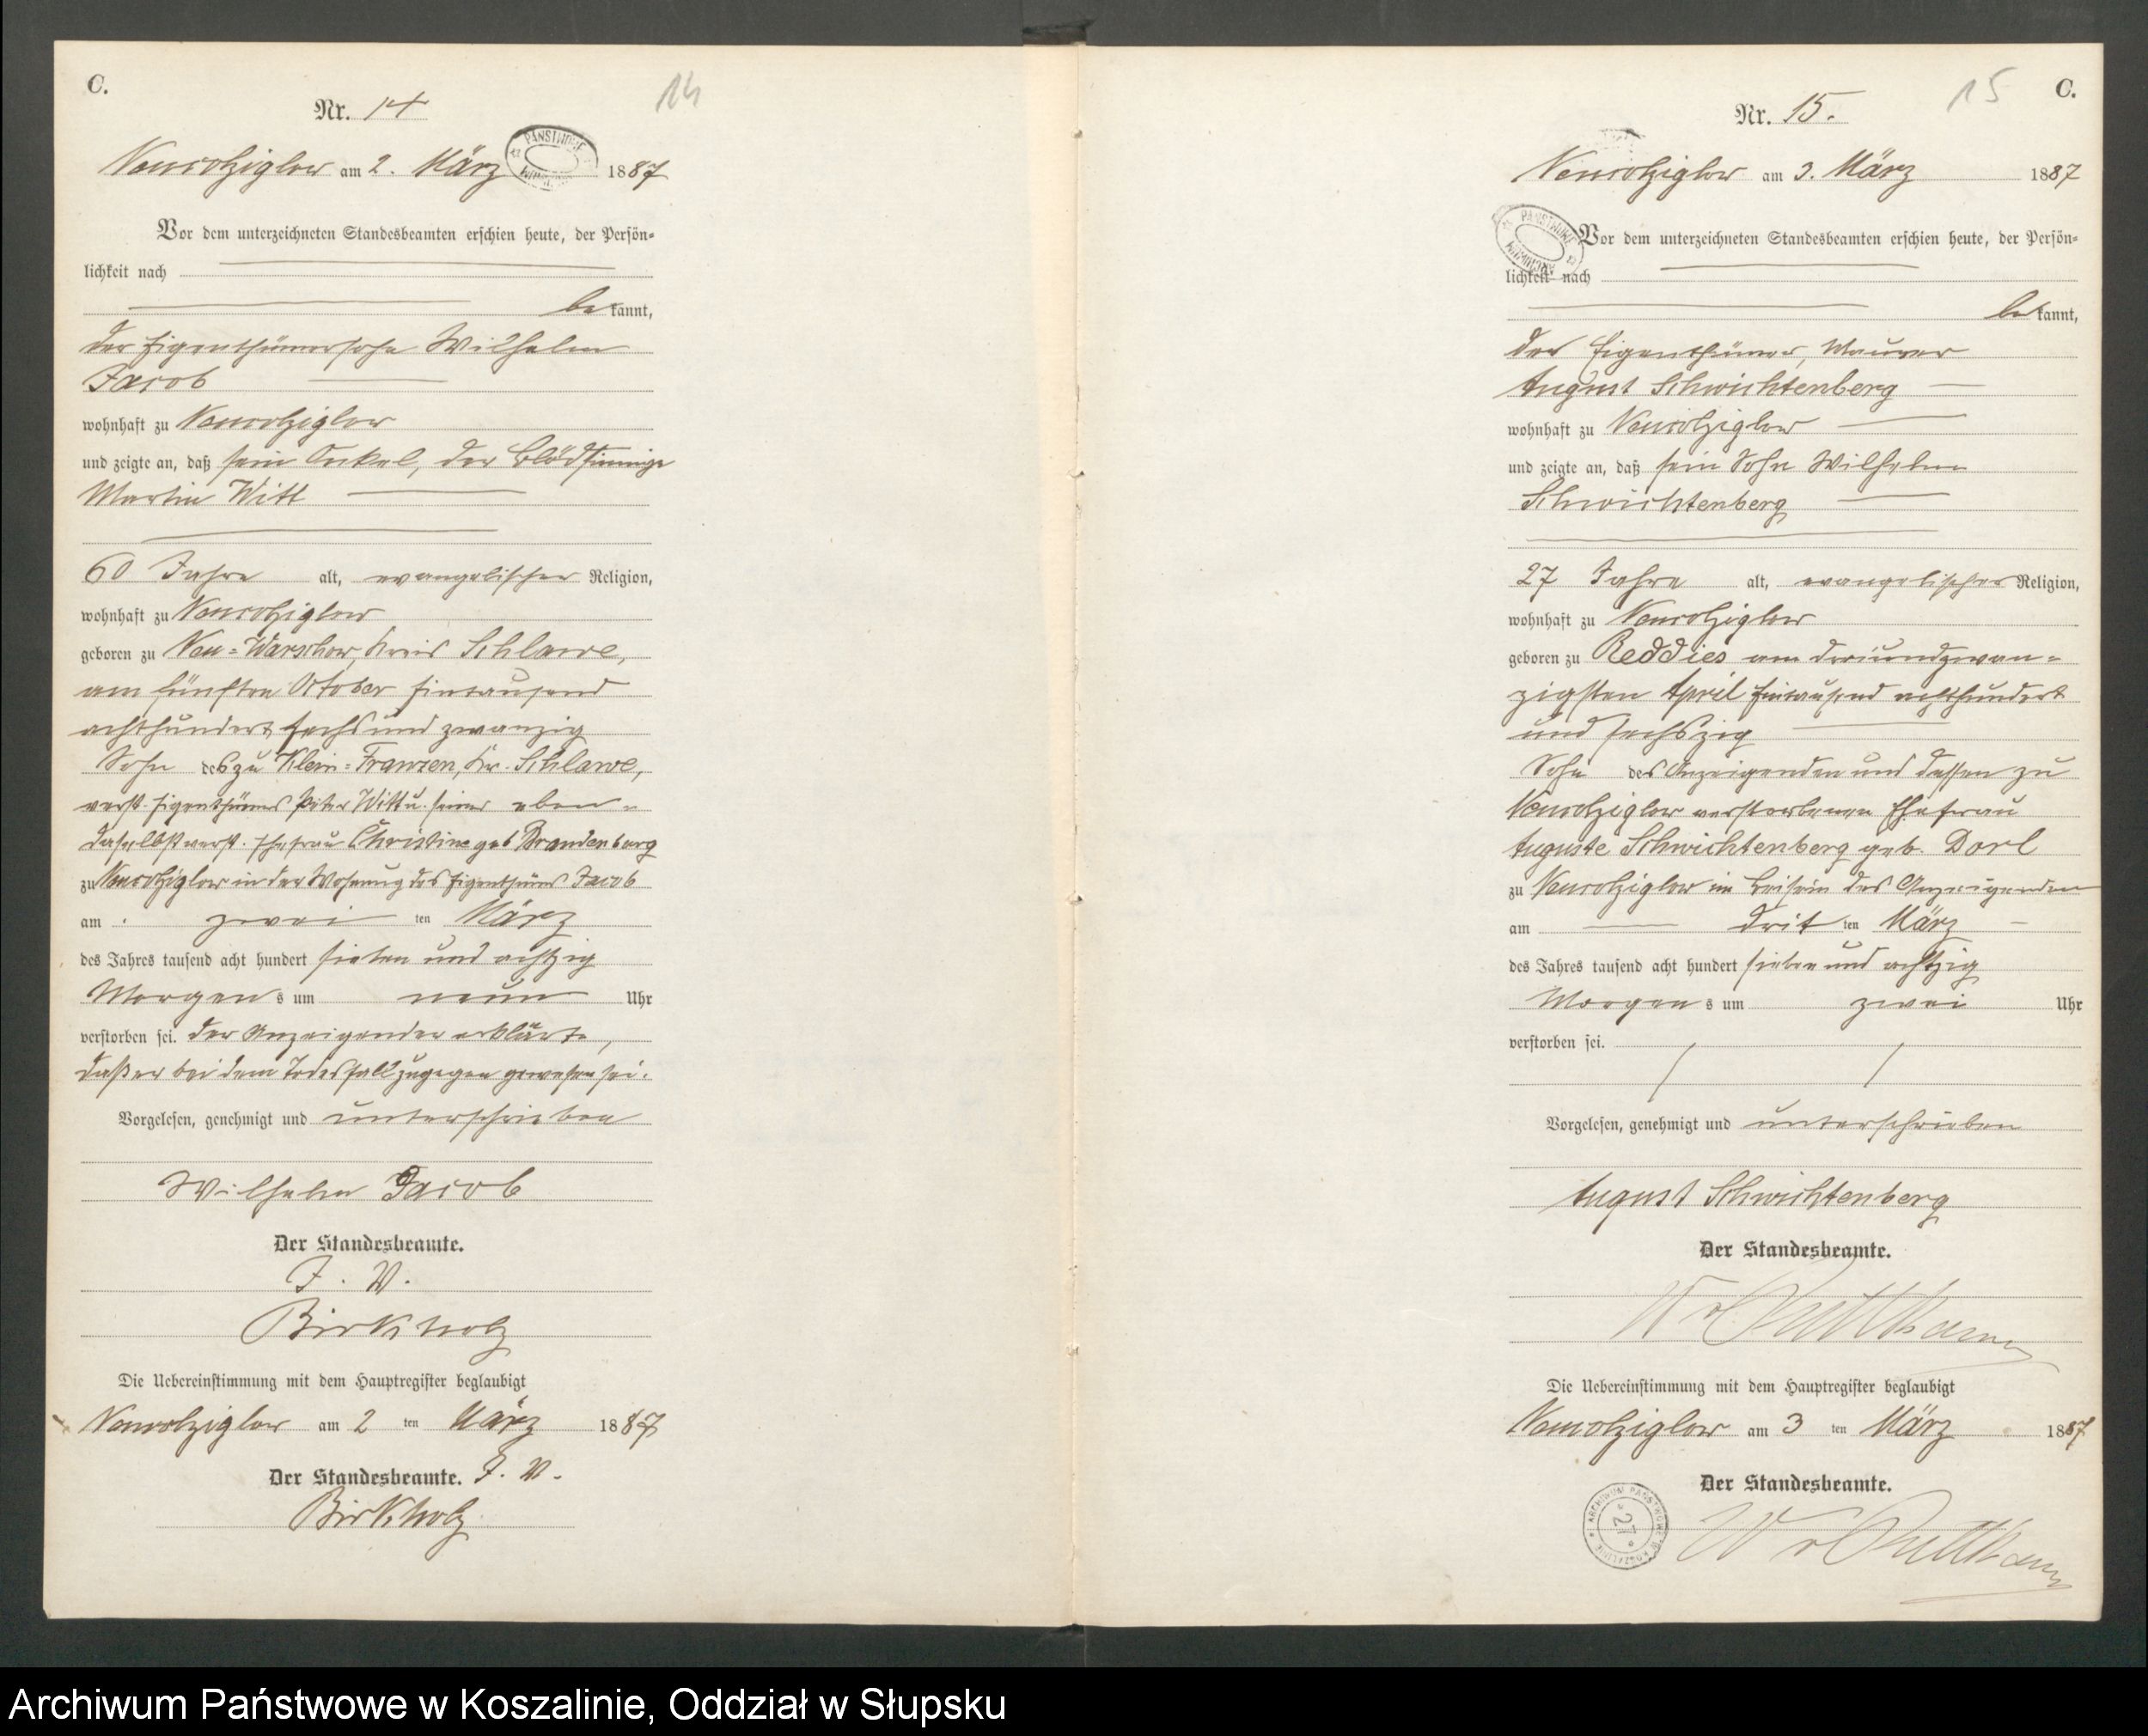 C.
14
Nr. 14
Neucolziglow am 2. März 1887
Vor dem unterzeichneten Standesbeamten erschien heute, der Persön-
lichkeit nach
be kannt,
der Eigenthümersohn Wilhelm
Jacob
wohnhaft zu Neucolziglow
und zeigte an, daß sein Onkel, der blödsinnige
Martin Witt
60 Jahre alt, evangelischer Religion,
wohnhaft zu Neucolziglow
geboren zu Neu-Warschow, Kreis Schlawe,
am fünften October Eintausend
achthundert sechs und zwanzig
Sohn des zu Klein-Franzen, Kr. Schlawe,
verst. Eigenthümers Peter Witt u. seiner eben-
daselbst verst. Ehefrau Christine geb Brandenburg
zu Neucolziglow in der Wohnung des Eigenthüms Jacob
am zwei ten März
des Jahres tausend acht hundert sieben und achtzig
Morgen s um neun Uhr
verstorben sei. Der Anzeigender erklärte,
daß er bei dem Todesfall zugegen gewesen sei.
Vorgelesen, genehmigt und unterschrieben
Wilhelm Jacob
Der Standesbeamte.
J. V.
Birkholz
Die Uebereinstimmung mit dem Hauptregister beglaubigt
Neucolziglow am 2 ten März 1887
Der Standesbeamte. J. V.
Birkholz
15
C.
Nr. 15.
Neucolziglow am 3. März 1887
Vor dem unterzeichneten Standesbeamten erschien heute, der Persön-
lichkeit nach
be kannt,
der Eigenthümer, Maurer
August Schwichtenberg
wohnhaft zu Neucolziglow
und zeigte an, daß sein Sohn Wilhelm
Schwichtenberg
27 Jahre alt, evangelischer Religion,
wohnhaft zu Neucolziglow
geboren zu Reddies am dreiundzwan-
zigsten April Eintausend achthundert
und sechszig
Sohn des Anzeigenden und dessen zu
Neucolziglow verstorbenen Ehefrau
Auguste Schwichtenberg geb. Dorl
zu Neucolziglow im Beisein des Anzeigenden
am drit ten März
des Jahres tausend acht hundert sieben und achtzig
Morgen s um zwei Uhr
verstorben sei.
Vorgelesen, genehmigt und unterschrieben
August Schwichtenberg
Der Standesbeamte.
W v Puttkamer
Die Uebereinstimmung mit dem Hauptregister beglaubigt
Neucolziglow am 3 ten März 1887
Der Standesbeamte.
ARCHIWUM PAŃSTWOWE W KOSZALINIE
27
W v Puttkamer
Archiwum Państwowe w Koszalinie, Oddział w Słupsku